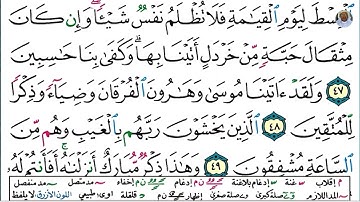 ٱلْقِسْطَ لِيَوْمِ ٱلْقِيَٰمَةِ فَلَا تُظْلَمُ نَفْسٌ شَيْـًٔا ۖ وَإِن كَانَ
مِثْقَالَ حَبَّةٍ مِّنْ خَرْدَلٍ أَتَيْنَا بِهَا ۗ وَكَفَىٰ بِنَا حَٰسِبِينَ
٤٧ وَلَقَدْ ءَاتَيْنَا مُوسَىٰ وَهَٰرُونَ ٱلْفُرْقَانَ وَضِيَآءً وَذِكْرًا
لِّلْمُتَّقِينَ ٤٨ ٱلَّذِينَ يَخْشَوْنَ رَبَّهُم بِٱلْغَيْبِ وَهُم مِّنَ
ٱلسَّاعَةِ مُشْفِقُونَ ٤٩ وَهَٰذَا ذِكْرٌ مُّبَارَكٌ أَنزَلْنَٰهُ ۚ أَفَأَنتُمْ لَهُۥ